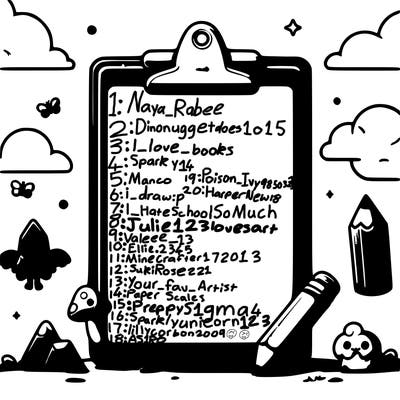 1: Naya_Rabee
2: Dinonuggetdoes1015
3: I_love_books
4: Sparky14
5: Manco 19: Poison_Ivy
6: i_draw:p 20: HarperNew18
7: I_HateSchoolSoMuch
8: Julie123lovesart
9: Valeee_13
10: Ellie.2345
11: Minecrafter172013
12: SukiRose221
13: Your_fav_Artist
14: Paper Scales
15: PreppyS1gma4
16: Sparklyunicorn123
17: lillycorbon2009
18: